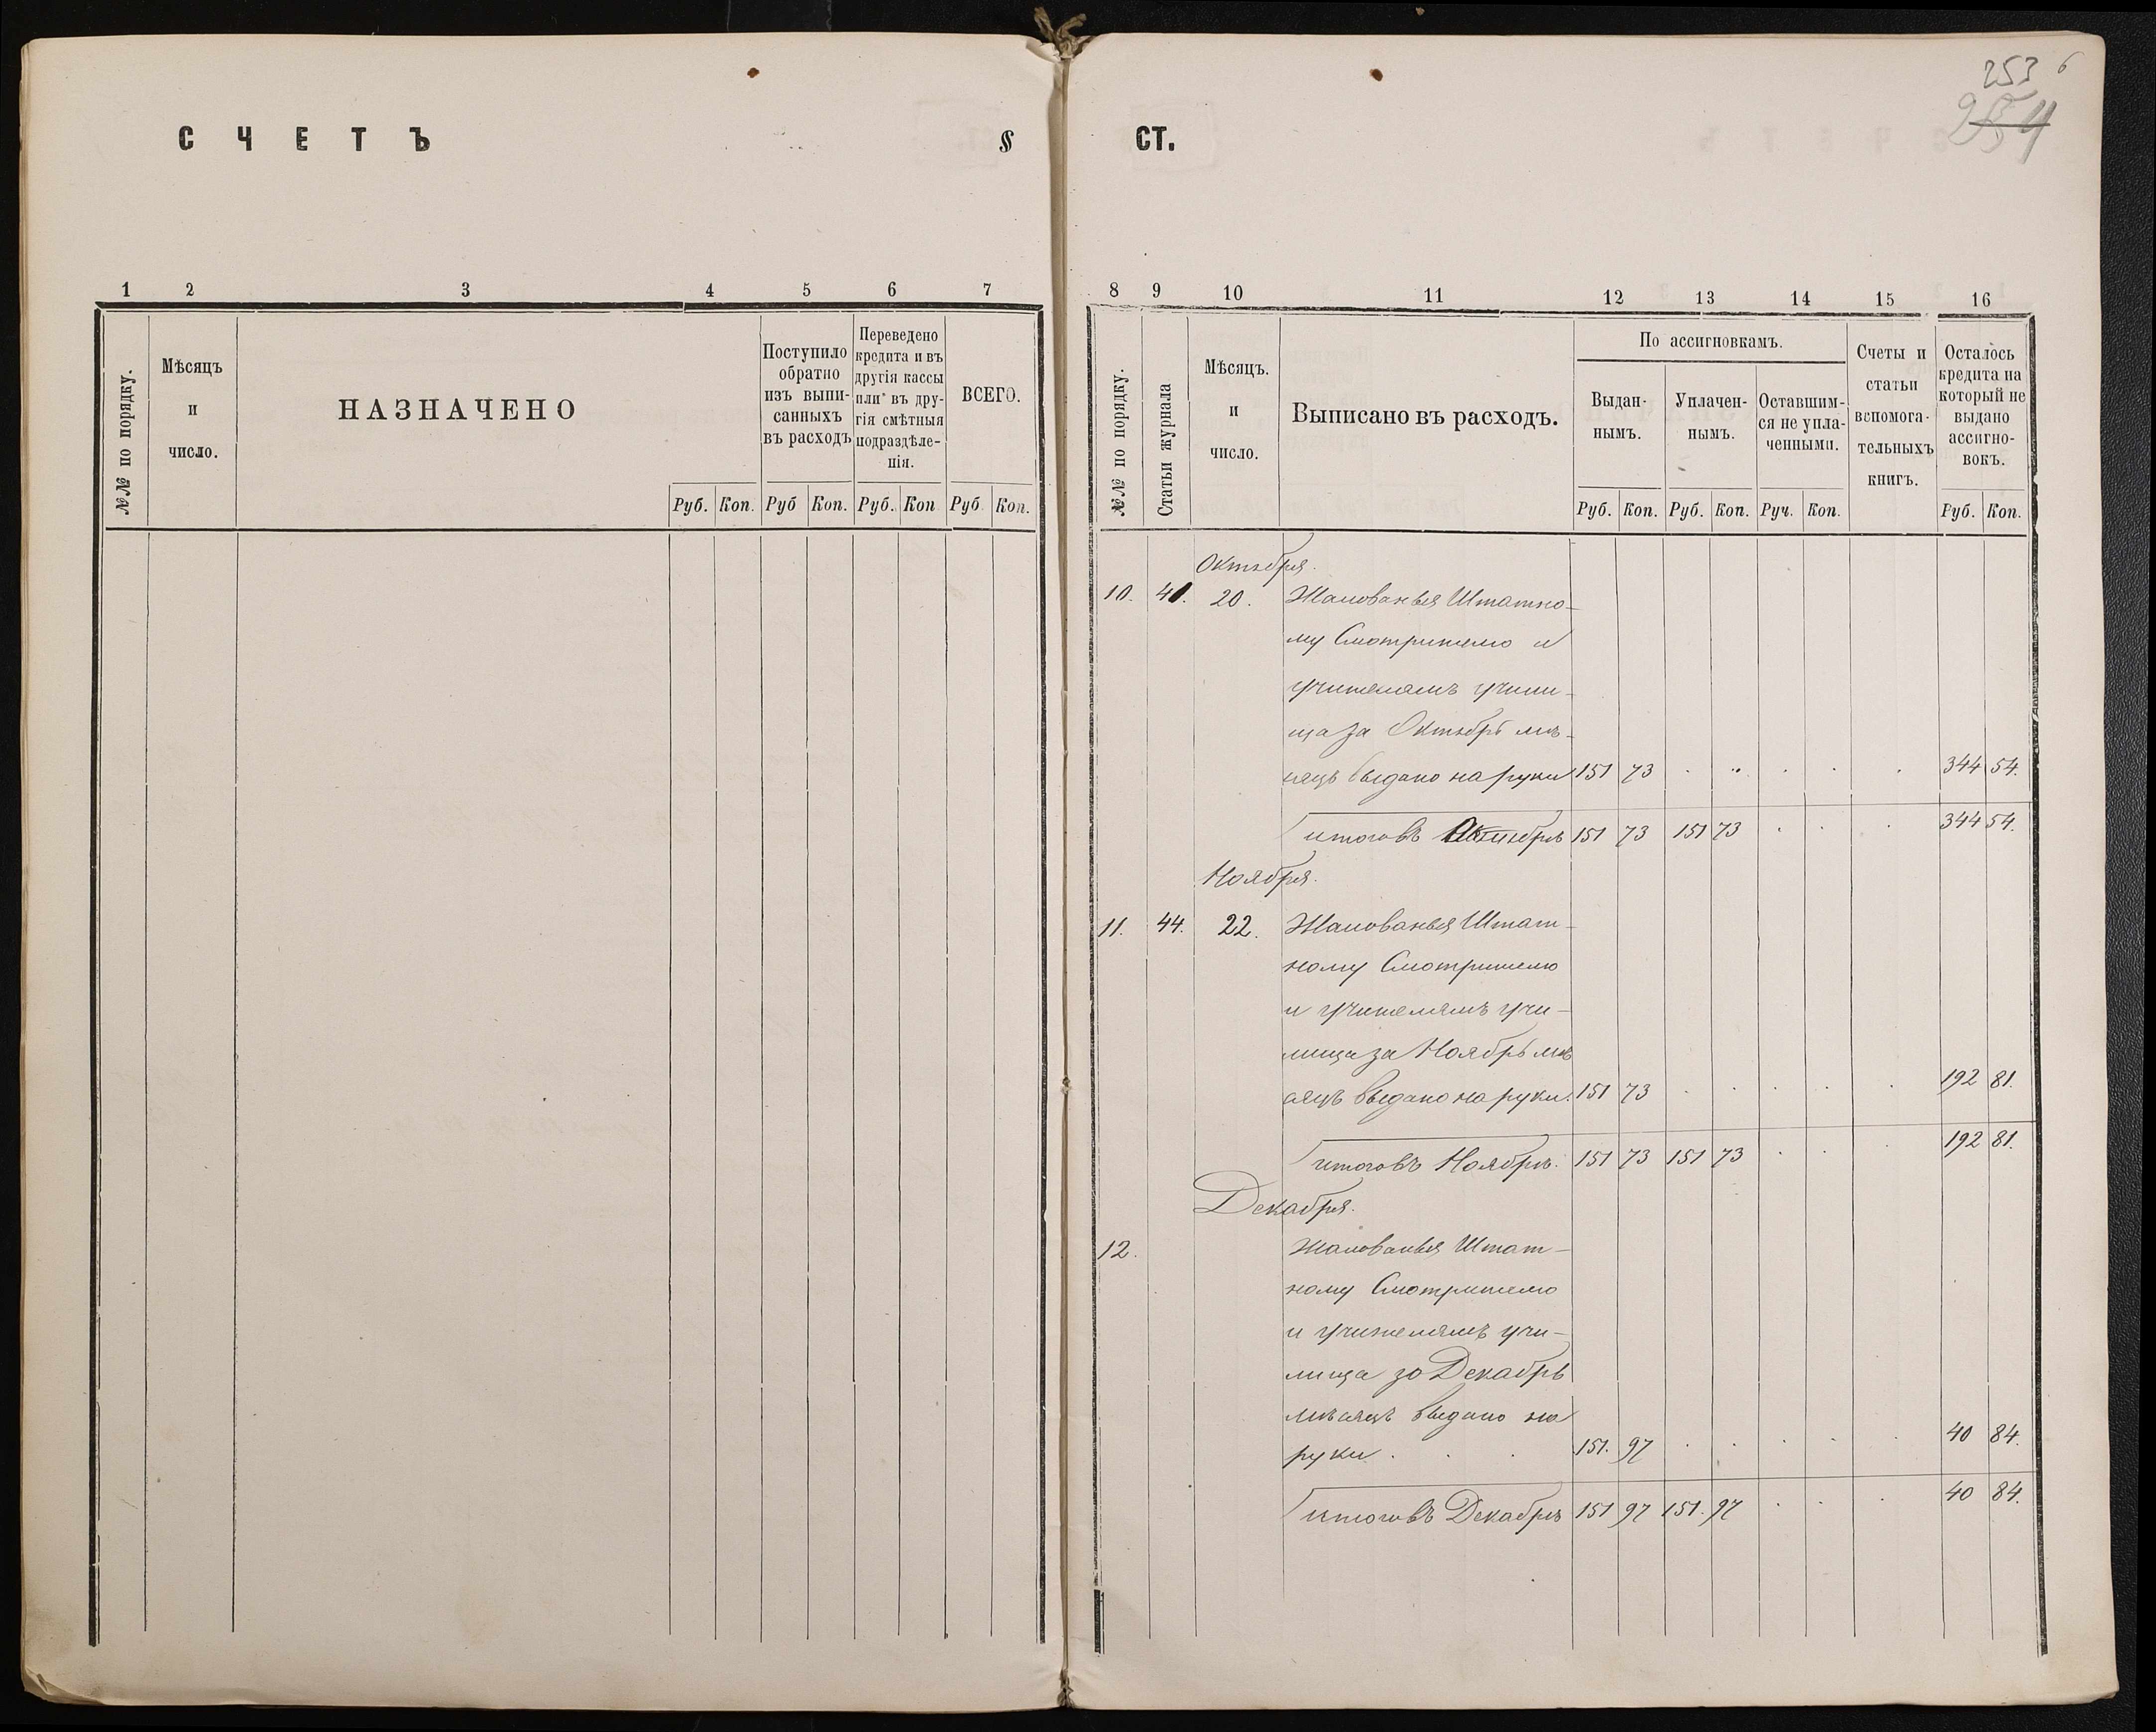 253 6
254
СЧЕТЪ § СТ.
1 2 3 4 5 6 7
№№ по порядку.
Мѣсяцъ
и
число.
НАЗНАЧЕНО
Поступило
обратно
изъ выпи-
санныхъ
въ расходъ
Переведено
кредита и въ
другія кассы
или въ дру-
гія смѣтныя
подраздѣле-
нія.
ВСЕГО.
Руб. Коп. Руб Коп. Руб. Коп Руб. Коп.
8 9 10 11 12 13 14 15 16
№№ по порядку.
Статьи журнала
Мѣсяцъ.
и
число.
Выписано въ расходъ.
По ассигновкамъ.
Выдан-
нымъ.
Уплачен-
нымъ.
Оставшим-
ся не упла-
ченными.
Счеты и
статьи
вспомога-
тельныхъ
книгъ.
Осталось
кредита на
который не
выдано
ассигно-
вокъ.
Руб. Коп. Руб. Коп. Руч. Коп. Руб. Коп.
Октября.
10. 40. 20. Жалованья Штатно-
му Смотрителю и
учителямъ учили-
ща за Октябрь мѣ-
сяцъ выдано на руки 151 73 344 54.
итого въ Октябрѣ 151 73 151 73 344 54.
Ноября.
11. 44. 22. Жалованья Штат-
ному Смотрителю
и учителямъ учи-
лища за Ноябрь мѣ
сяцъ выдано на руки. 151 73 192 81.
итого въ Ноябрѣ. 151 73 151 73 192 81.
Декабря.
12. Жалованья Штат-
ному Смотрителю
и учителямъ учи-
лища за Декабрь
мѣсяцъ выдано на
руки. 151. 97 40 84.
итого въ Декабрѣ 151 97 151. 97 40 84.